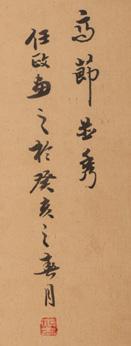 高節並秀
任政畫之於癸亥之春月